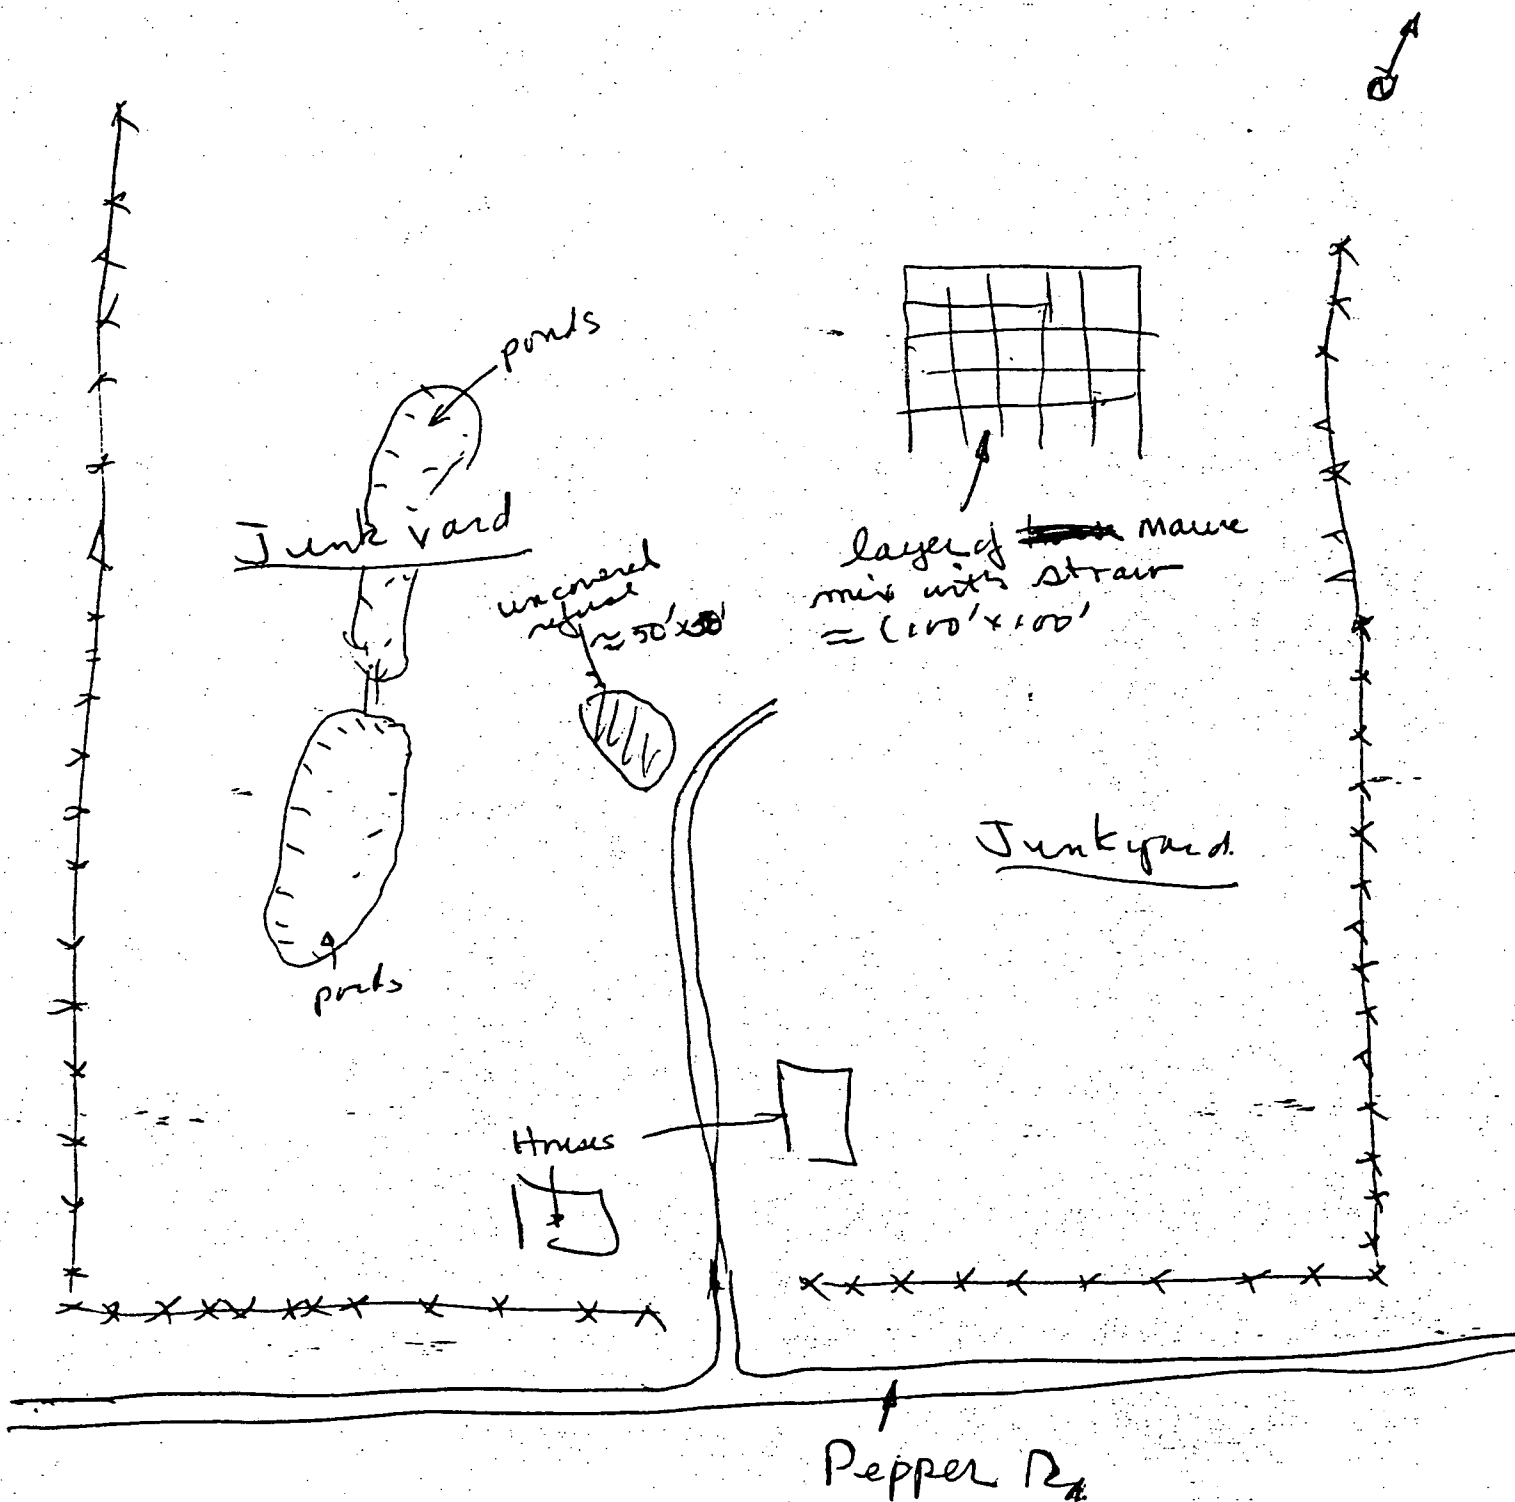 ponds
Junk Yard
uncovered
refuse
≈ 50'x50'
layer of manure
mix with straw
≈ (100'x100'
Junkyard.
ponds
Houses
Pepper Rd.